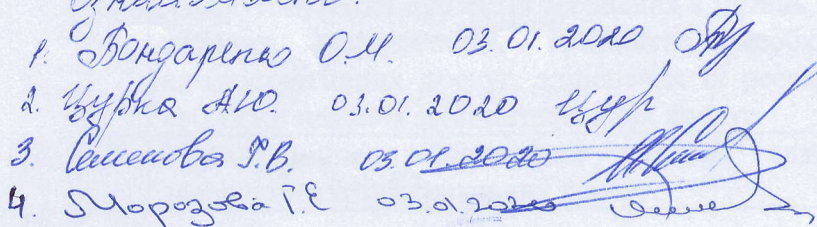 Ознайомлені:
1. Бондаренко О.М. 03.01.2020
2. Цурка А.Ю. 03.01.2020 Цур
3. Семенова Г.В. 03.01.2020
4. Морозова Г.Е 03.01.2020